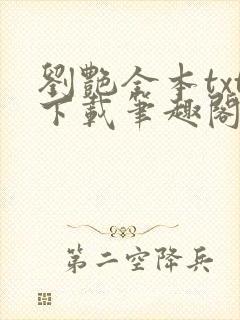 劉艷全本txt
下載筆趣閣
第二空降兵